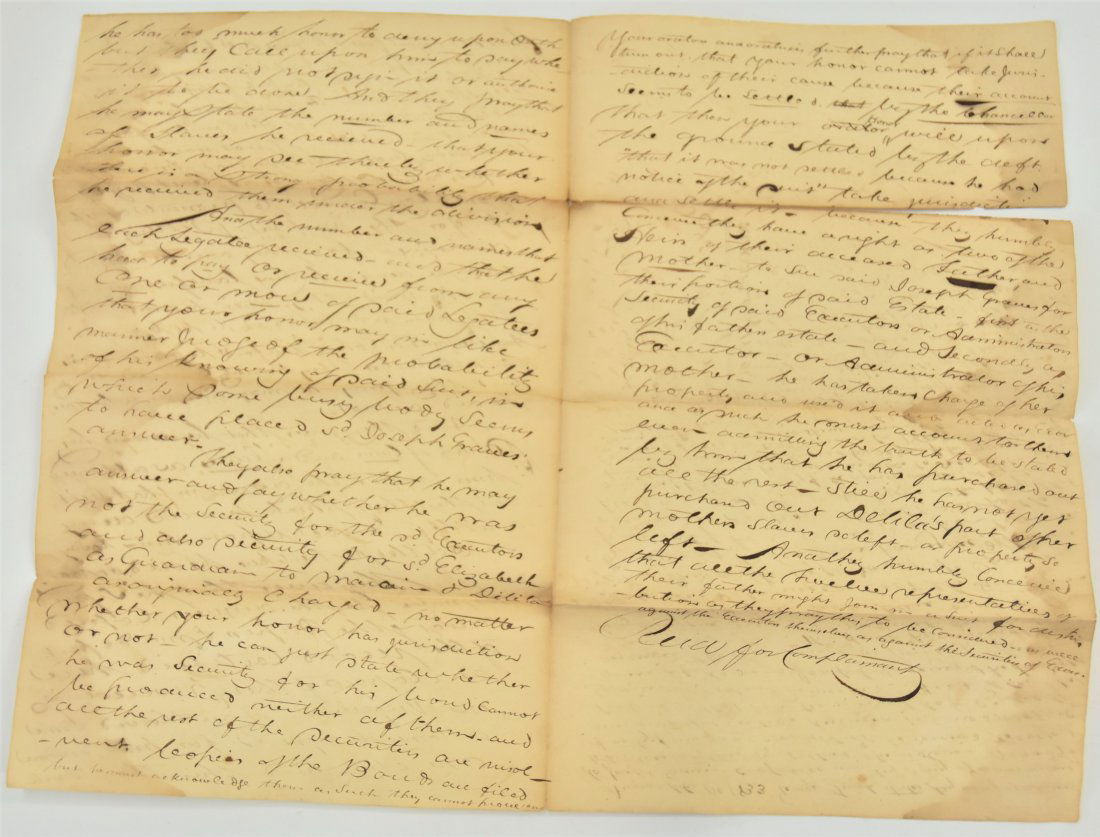 he has too much honor to deny upon Oath
but they Call upon him to say whe-
-ther he did not sign it or authorise
it to be done. And they pray that
he may State the number and names
of Slaves he received - that your
honor may see thereby whether
there is a Strong probability that
he received them under the division
And the number and names that
each Legatee received - and that he
had to pay or received from any
One or more of said Legatees
that your honor may in like
manner Judge of the probability
of his Knowing of said Suit, in
which Some busy body Seems
to have placed sd. Joseph Graves
answer.
They also pray that he may
answer and say whether he was
not the Security for the sd Executors
and also security for sd. Elizabeth
as Guardian to & Delila
as originaly Charged - no matter
whether your honor has jurisdiction
or not - he can just state whether
he was Security for his bond Cannot
be produced neither of them - and
all the rest of the securities are insol-
-vent. Copies of the Bonds are filed
but he must acknowledge them as such they cannot prove
Your orator and oratrix further pray that if it Shall
turn out that your honor cannot take Juris-
-diction of their cause because their account
seems to be Settled by the Chancellor
that then your honor will upon
the ground stated by the deft.
"that it was not settled because he had
notice of the suit" take jurisdiction
and settle it - because they humbly
Conceive they have a right as two of the
Heirs of their deceased Father, and
Mother - to Sue said Joseph Graves for
their portion of said Estate - first as the
Security of said Executors or Administrators
of his fathers estate - and Secondly as
Executor - or Administrator of his
mother - he has taken Charge of her
property and used it
and as such he must account to them
even admitting the truth to be stated
by him that he has purchased out
all the rest - Still he has not yet
purchased out Delila's part of her
mothers Slaves so left - or property So
left - And they humbly Conceive
that all the twelve representatives of
their father might Join in a Suit for distri-
bution as they pray this to be considered as well
against the Executors themselves as against the Securities of Exors.
for Complainant